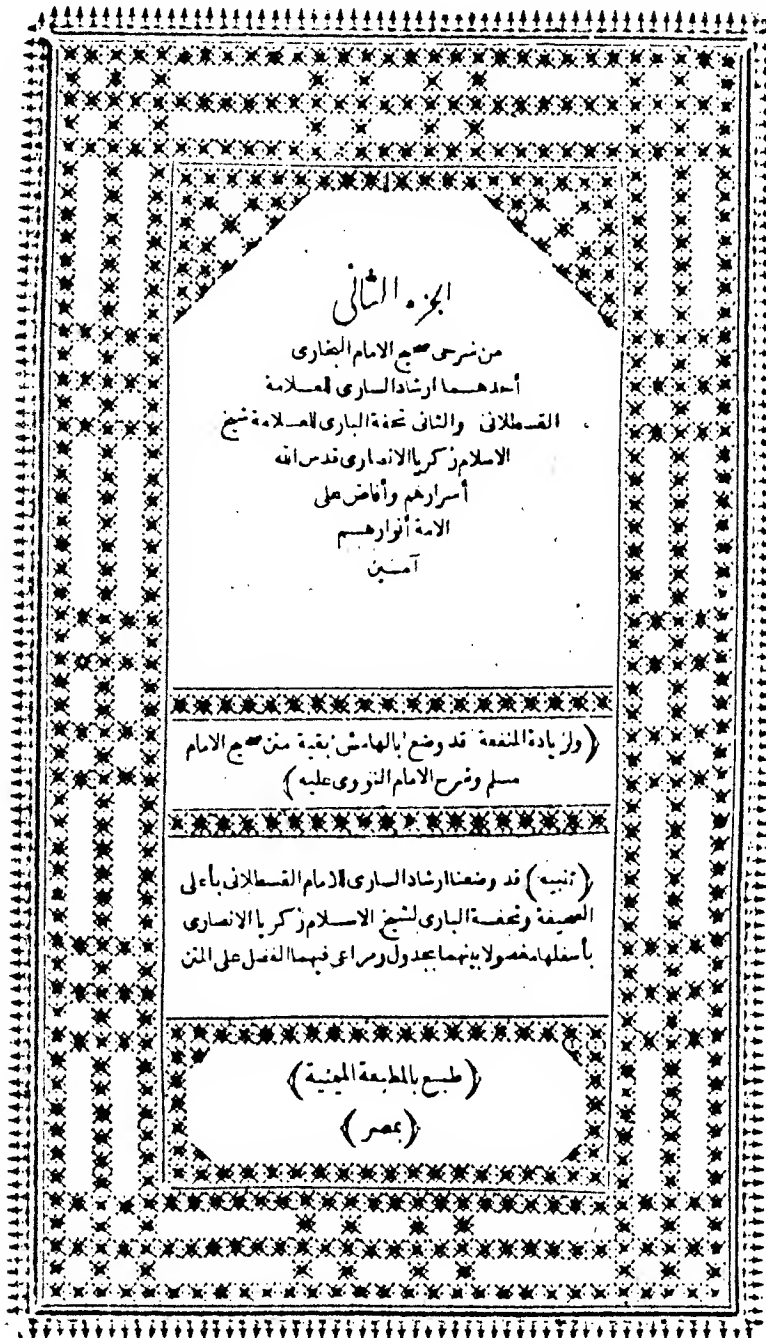 الجزء الثانى
من شرحى صحيح الامام البخارى
أحدهما ارشاد السارى للعلامة
القسطلانى والثانى تحفة البارى للعلامة شيخ
الاسلام زكريا الانصارى قدس الله
أسرارهم وأفاض على
الامة أنوارهم
آمين
(ولزيادة المنفعة قد وضع بالهامش بقية متن صحيح الامام
مسلم وشرح الامام النووى عليه)
(تنبيه) قد وضعنا ارشاد السارى للامام القسطلانى بأعلى
الصحيفة وتحفة البارى لشيخ الاسلام زكريا الانصارى
بأسفلها مفصولا بينهما بجدول ومراعى فيهما الفضل على المتن
(طبع بالمطبعة الميمنية)
(بمصر)